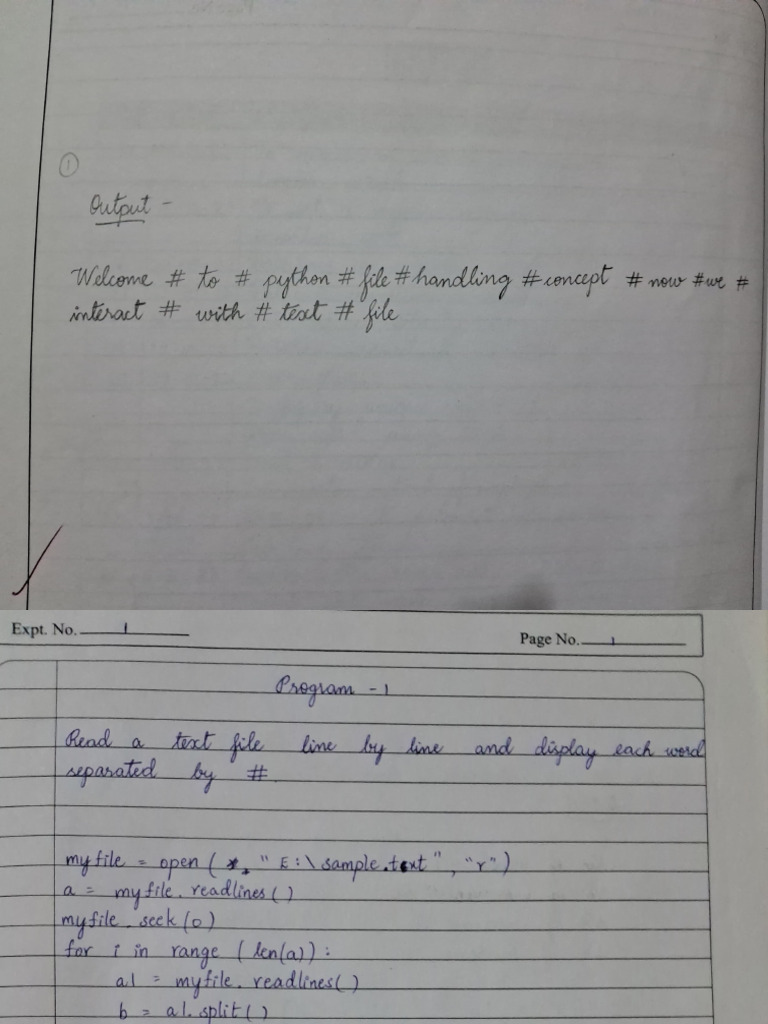 1
Output -
Welcome # to # python # file # handling # concept # now # we #
interact # with # text # file
Expt. No. 1
Page No. 1
Program - 1
Read a text file line by line and display each word
separated by #
myfile = open ( "E:\sample.text", "r")
a = myfile.readlines()
myfile.seek(0)
for i in range (len(a)):
a1 = myfile.readlines()
b = a1.split()